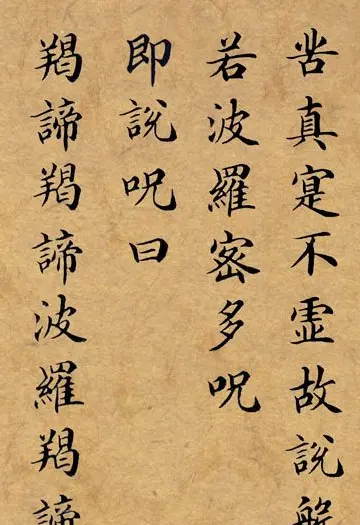 苦真寔不虛故說般
若波羅密多呪
即說呪曰
羯諦羯諦波羅羯諦